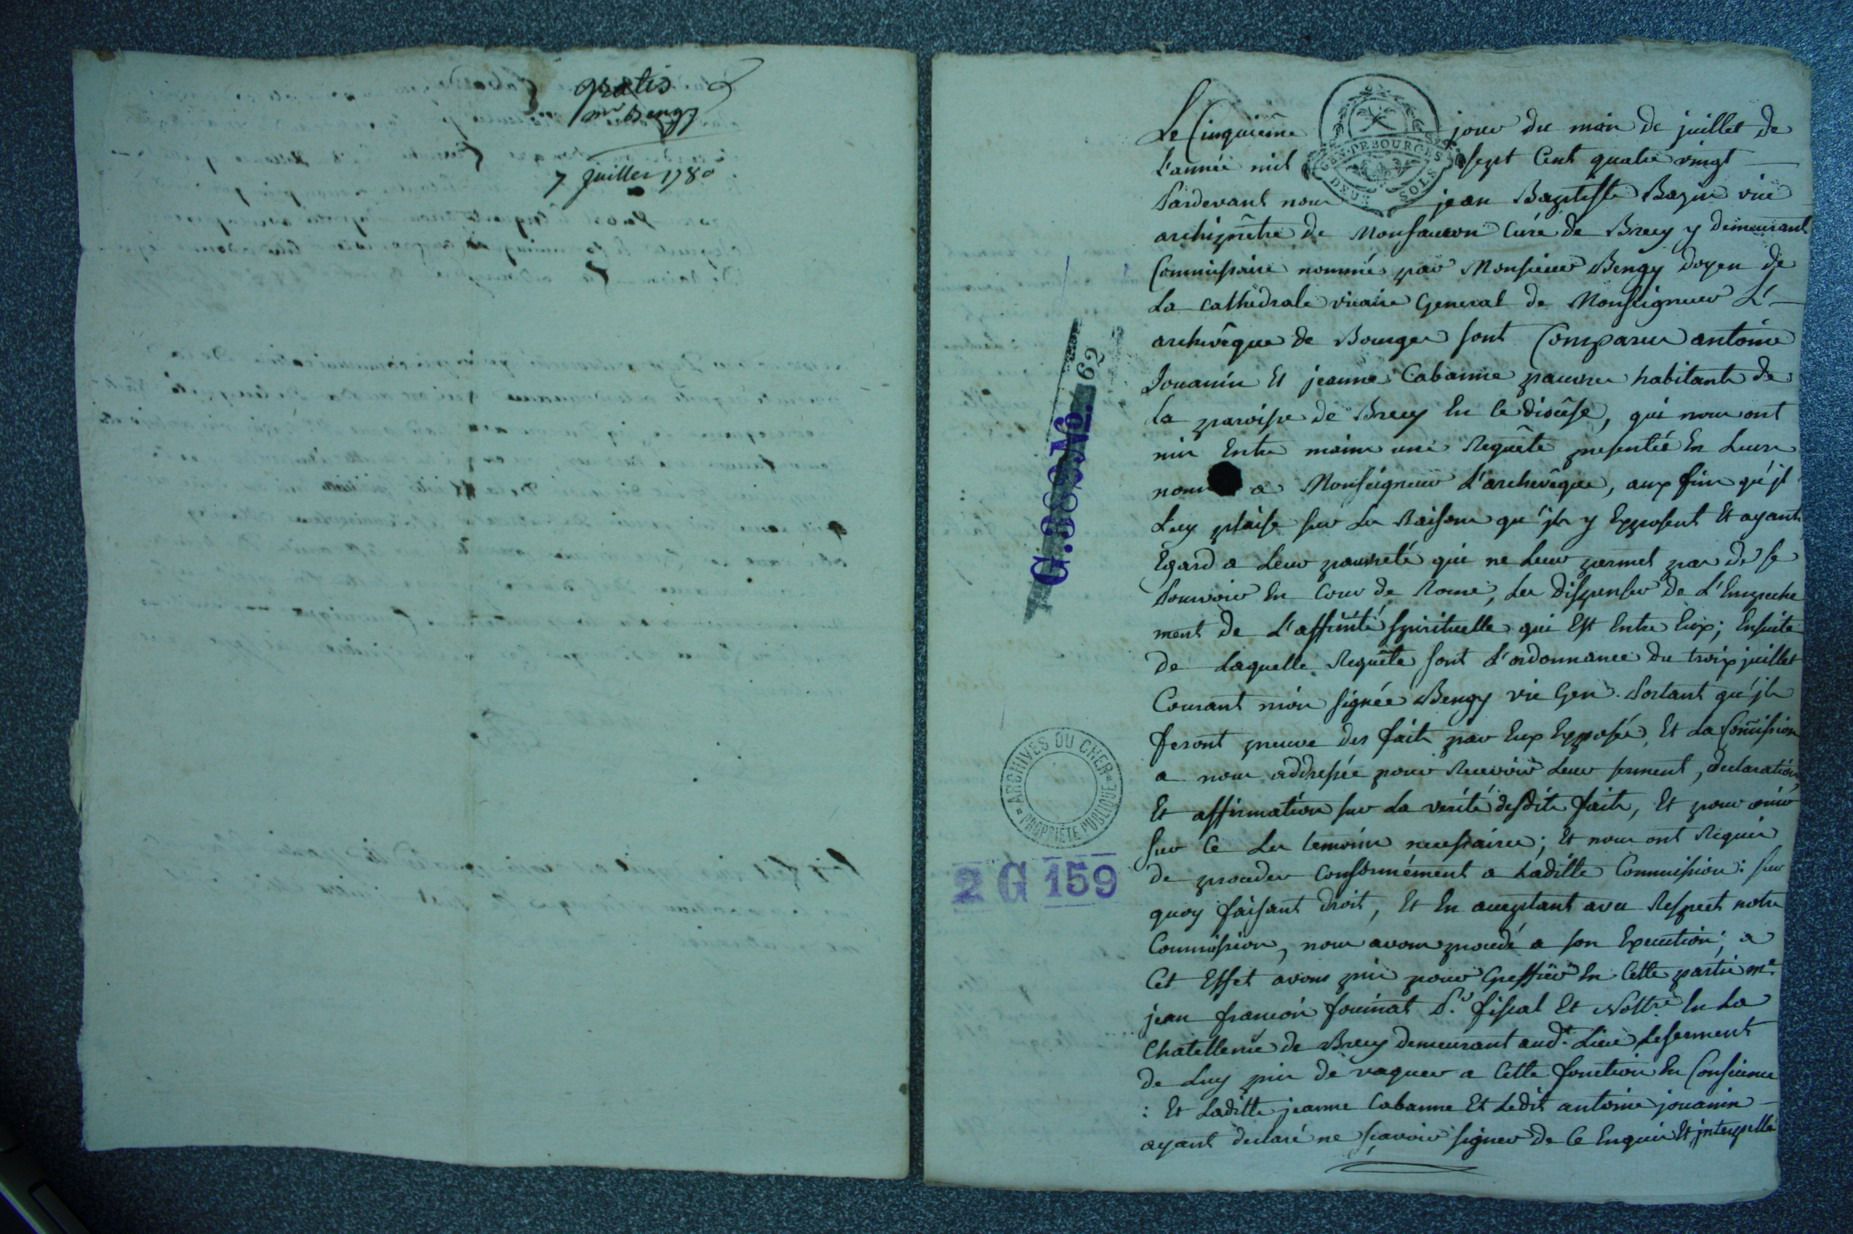 gratis
mr Bengy
7 juillet 1780
Le Cinquieme jour du mois de juillet de
L'année mil sept Cent quatre vingt
Pardevant nous jean Baptiste Bazin vice
archiprêtre de Monfaucon Curé de Brecy y demeurant
Commissaire nommé par Monsieur Bengy doyen de
La cathedrale vicaire General de Monseigneur L'
archevêque de Bourges sont Comparus antoine
Jouanin Et jeanne Cabanne pauvres habitants de
la paroisse de Brecy En ce diocèse, qui nous ont
mis Entre mains une Requête presentée En Leurs
noms a Monseigneur L'archevêque, aux fins qu'jl
Luy plaise sur Les Raisons qu'jls y Exposent Et ayant
Egard a Leur pauvreté qui ne Leur permet pas de se
Pourvoir En Cour de Rome, Les dispenser de L'Empeche
ment de L'affinité spirituelle qui Est Entre Eux; Ensuite
de Laquelle Requête sont L'ordonnance du trois juillet
Courant mois signée Bengy vic Gen. Portant qu'jls
feront preuve des faits par Eux Exposés, Et La Comission
a nous addressée pour Recevoir Leur serment, declaration
Et affirmation sur La verité desdits faits, Et pour ouir
sur Ce Les temoins necessaires; Et nous ont Requis
de proceder Conformément a Laditte Commission: sur
quoy faisant droit, Et En acceptant avec Respect notre
Commission, nous avons procedé a son Execution; a
Cet Effet avons pris pour Greffier En Cette partie me.
jean francois fournat Pr. fiscal Et Nottre. En La
Chatellenie de Brecy demeurant aud. Lieu Leserment
de Luy pris de vaquer a Cette fonction En Conscience
: Et Laditte jeanne Cabanne Et Ledit antoine jouanin
ayant declaré ne sçavoir signer de Ce Enquis Et jnterpellé
GEN. DE BOURGES
DEUX SOLS
G. 389 No. 62
ARCHIVES DU CHER
PROPRIÉTÉ PUBLIQUE
2 G 159